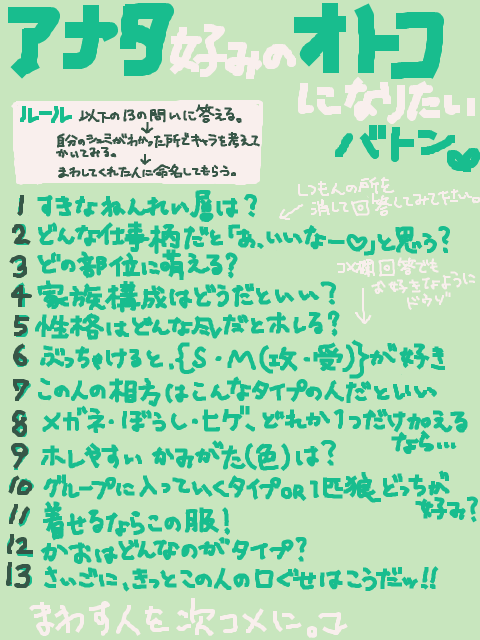 アナタ好みのオトコ
になりたい
バトン♥
ルール 以下の13の問いに答える。
↓
自分のシュミがわかった所でキャラを考えて
かいてみる。
↓
まわしてくれた人に命名してもらう。
しつもんの所を
消して回答してみて下さい。
1 すきなねんれい層は?
2 どんな仕事柄だと「お、いいなー♡」と思う?
3 どの部位に萌える?
コメ欄回答でも
お好きなように
ドウゾ
4 家族構成はどうだといい?
5 性格はどんな風だとホレる?
6 ぶっちゃけると、{S・M(攻・受)}が好き
7 この人の相方はこんなタイプの人だといい
8 メガネ・ぼうし・ヒゲ、どれか1つだけ加える
なら…
9 ホレやすい かみがた(色)は?
10 グループに入っていくタイプor1匹狼、どっちが
好み?
11 着せるならこの服!
12 かおはどんなのがタイプ?
13 さいごに、きっとこの人の口ぐせはこうだッ!!
まわす人を次コメに。